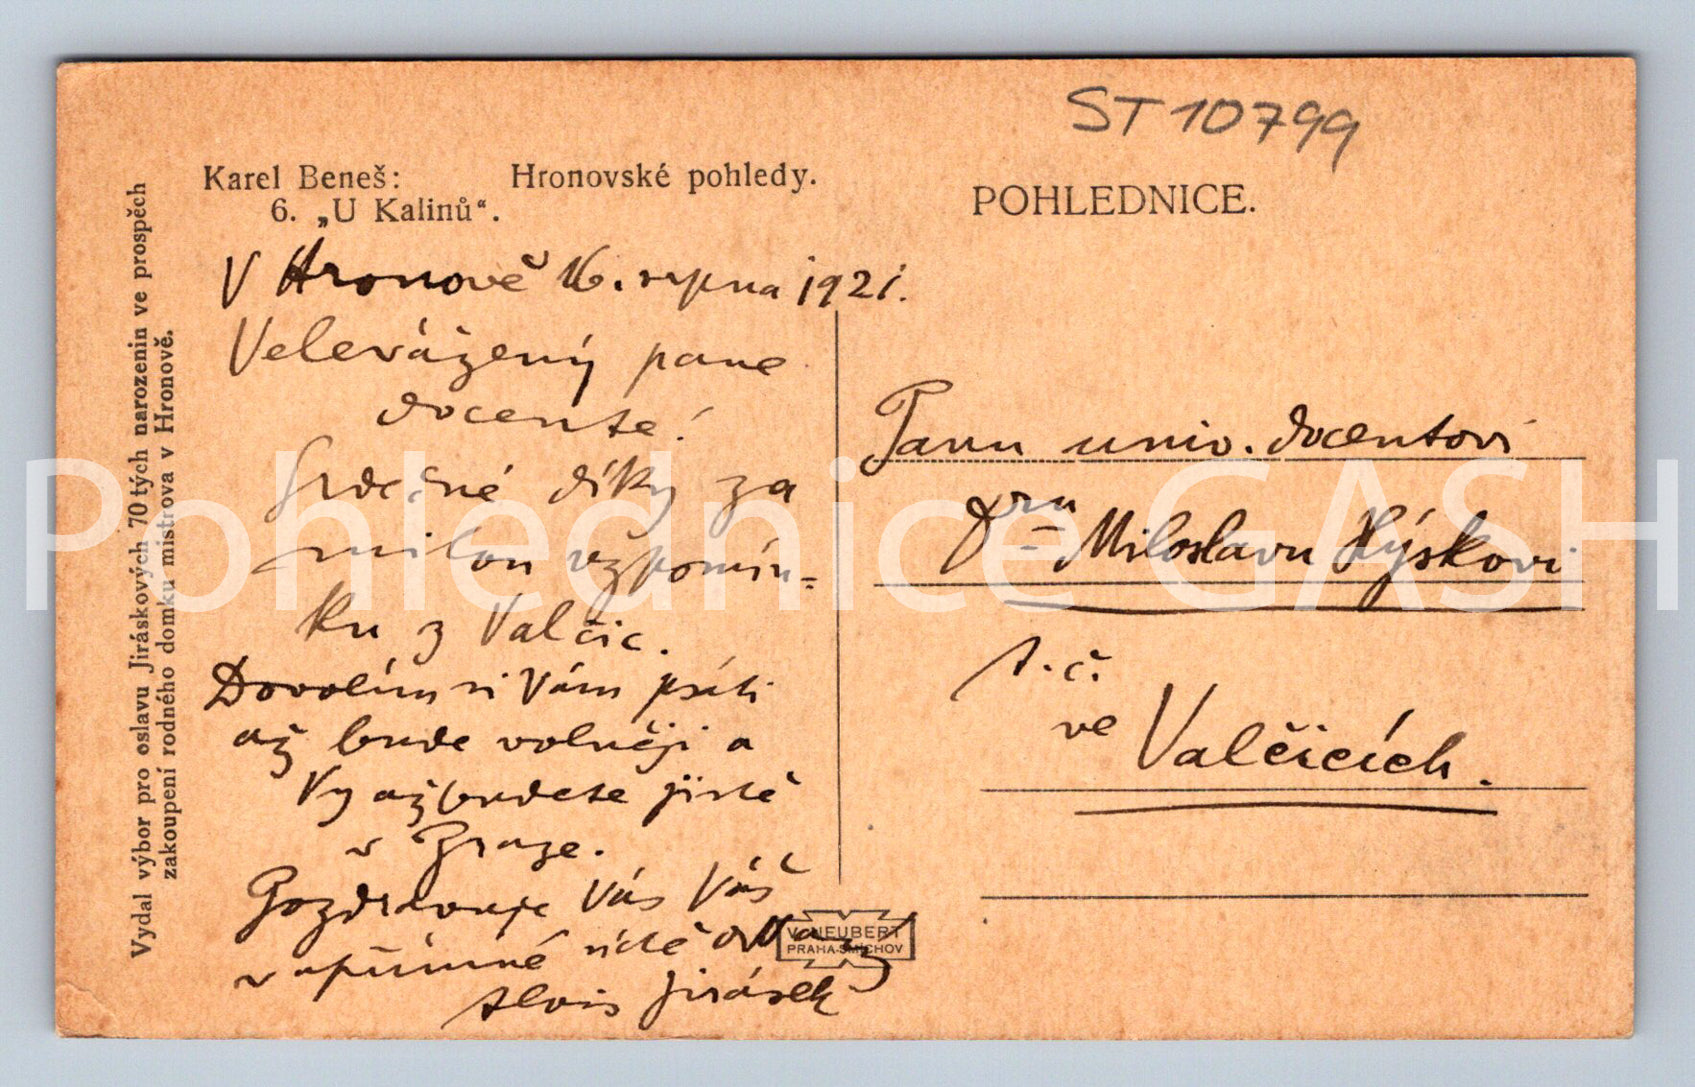 ST 10799
Karel Beneš: Hronovské pohledy.
6. „U Kalinů“.
POHLEDNICE.
V Hronově 16. srpna 1921.
Velevážený pane
docente!
Srdečné díky za
milou vzpomín=
ku z Valčic.
Dovolím si Vám psáti
až bude volněji a
Vy až budete jistě
v Praze.
Pozdravuje Vás Váš
v upřímné úctě
Alois Jirásek
Panu univ. docentovi
Dru Miloslavu Hýskovi
t. č.
ve Valčicích.
Vydal výbor pro oslavu Jiráskových 70 tých narozenin ve prospěch
zakoupení rodného domku mistrova v Hronově.
V. NEUBERT
PRAHA-SMÍCHOV
Pohlednice GASH